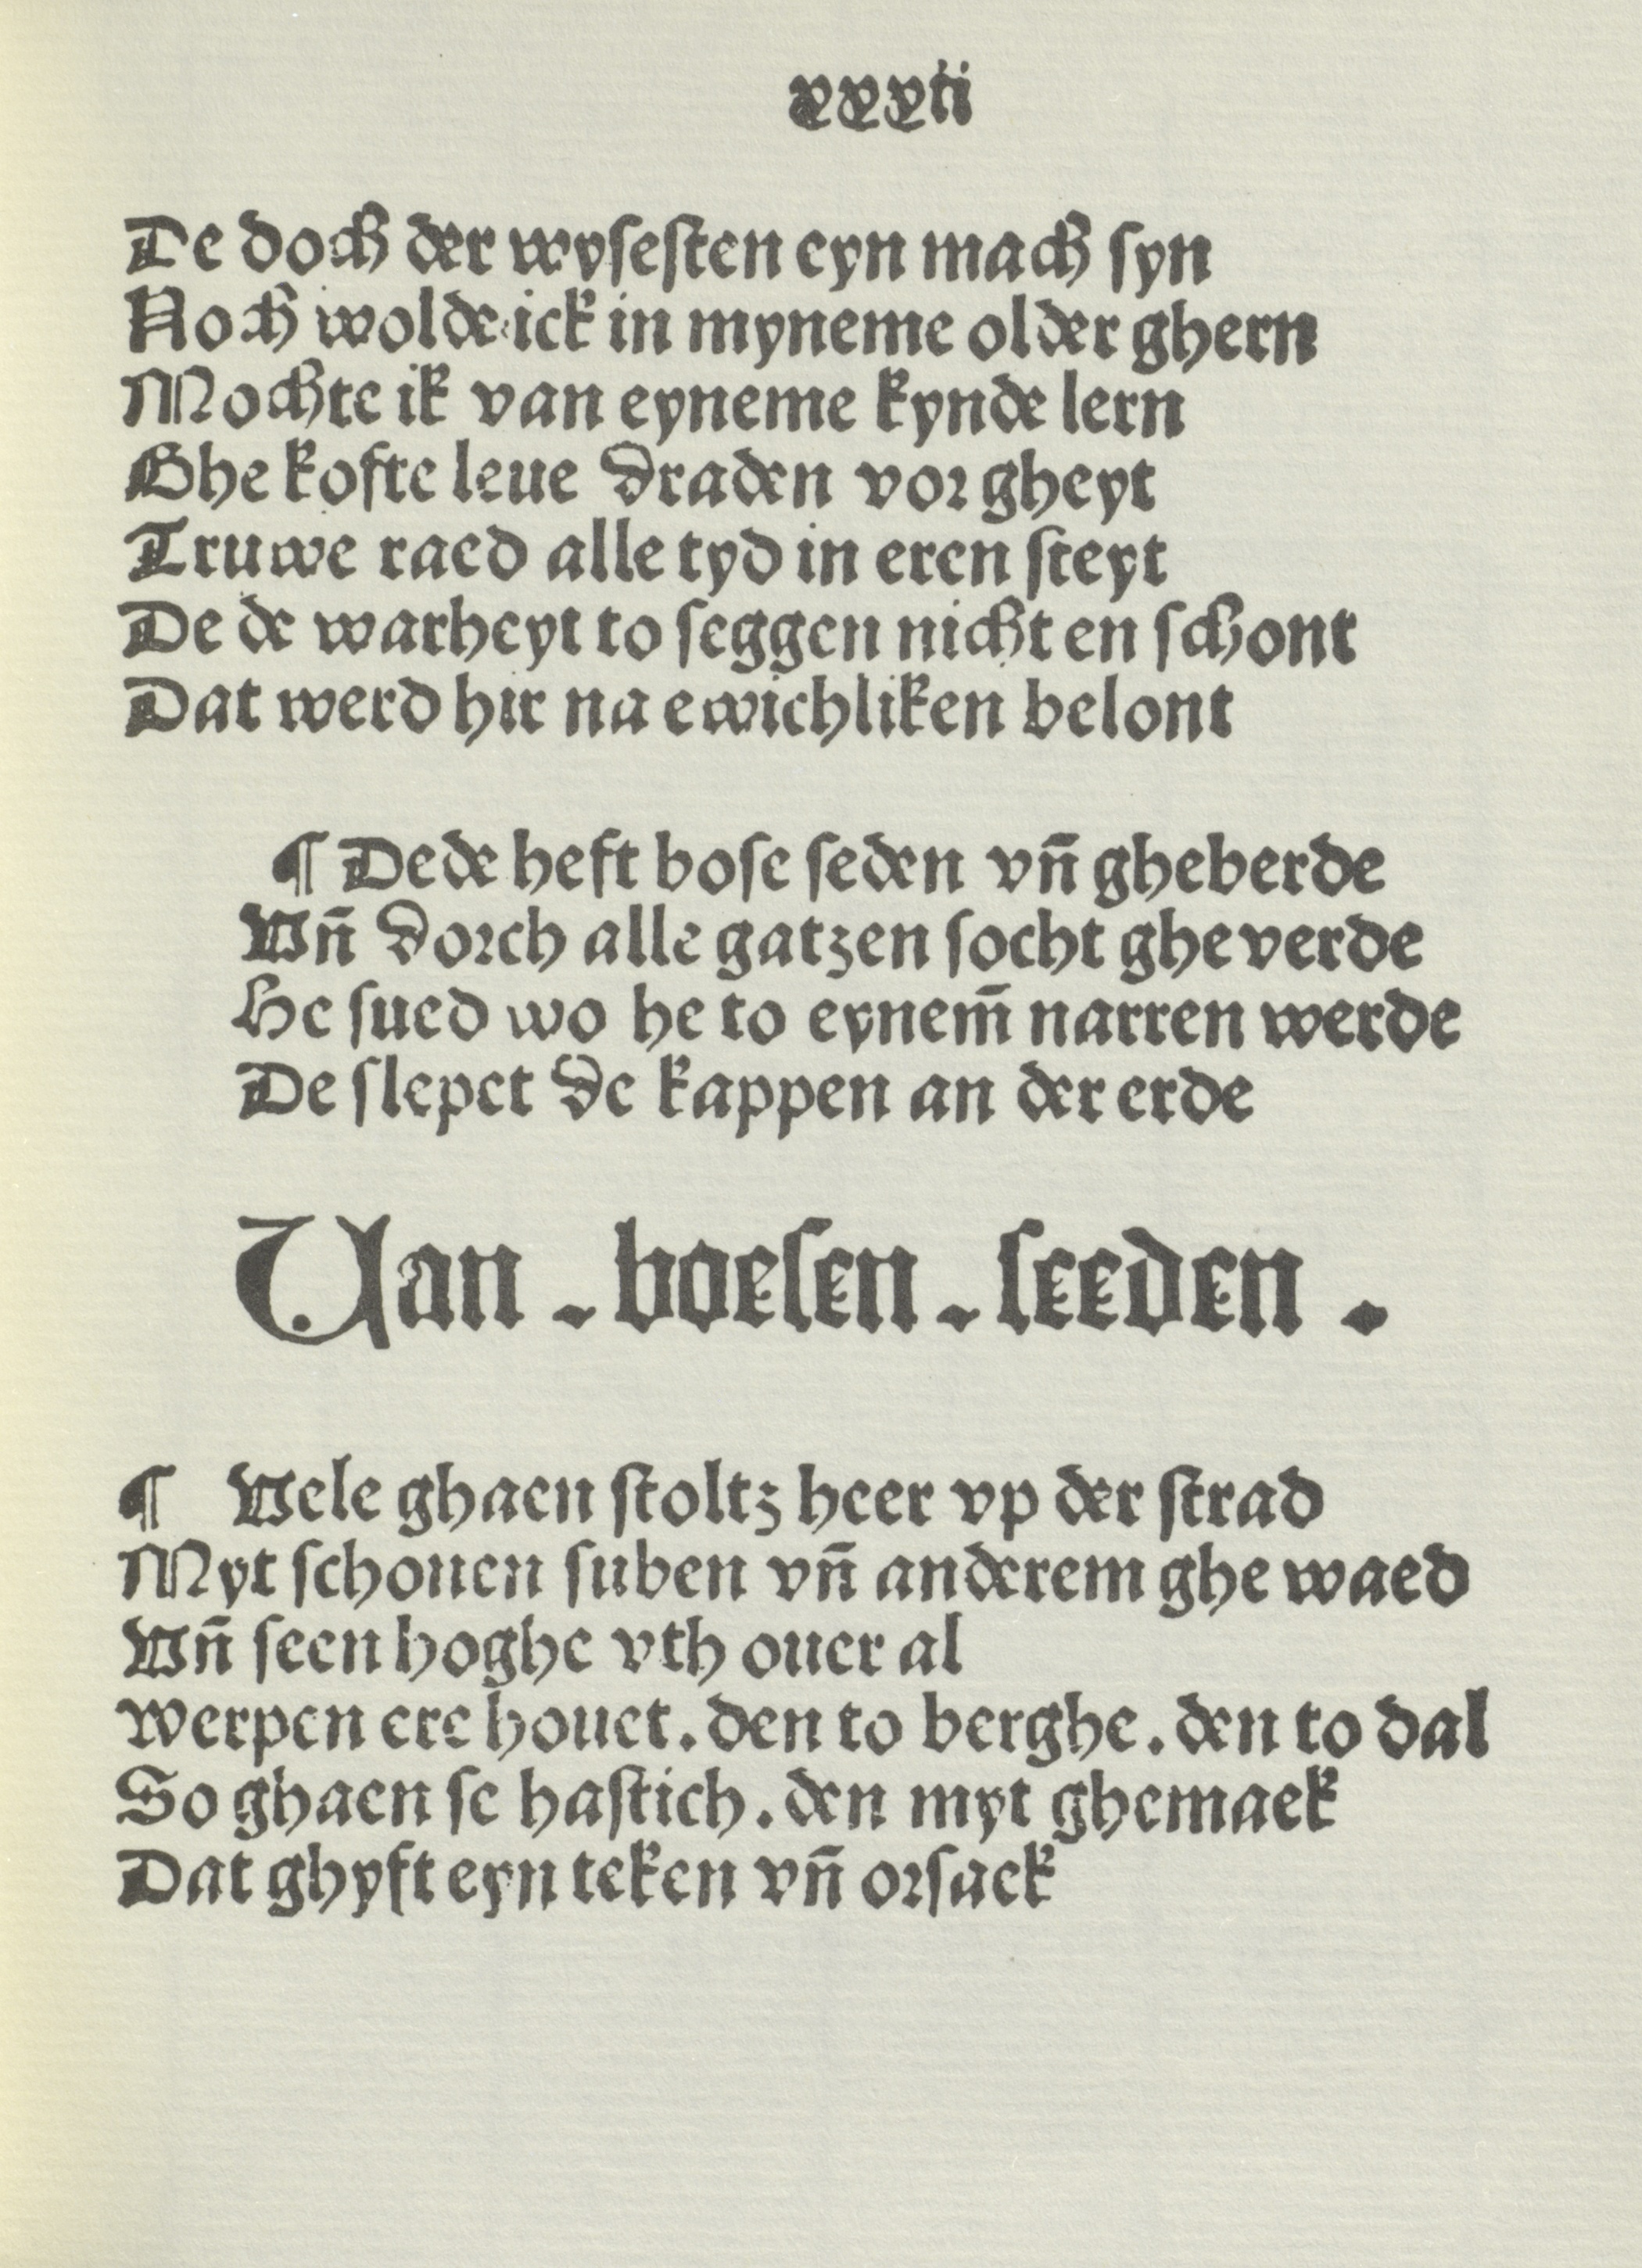 xxxii
De doch der wyſeſten eyn mach ſyn
Noch wolde ick in myneme older ghern
Mochte ik van eyneme kynde lern
Ghe kofte leue draden vorgheyt
Truwe raed alle tyd in eren ſteyt
De de warheyt to ſeggen nicht en ſchont
Dat werd hir na ewichliken belont
¶ Dede heft boſe ſeden vn̄ gheberde
Vn̄ dorch alle gatzen ſocht gheverde
He ſued wo he to eynem̄ narren werde
De ſlepet de kappen an der erde
Uan . boeſen . ſeeden .
¶ Vele ghaen ſtoltz heer vp der ſtrad
Myt ſchouen ſuben vn̄ anderem ghe waed
Vn̄ ſeen hoghe vth ouer al
werpen ere houet . den to berghe . den to dal
So ghaen ſe haſtich . den myt ghemaek
Dat ghyft eyn teken vn̄ orſaek